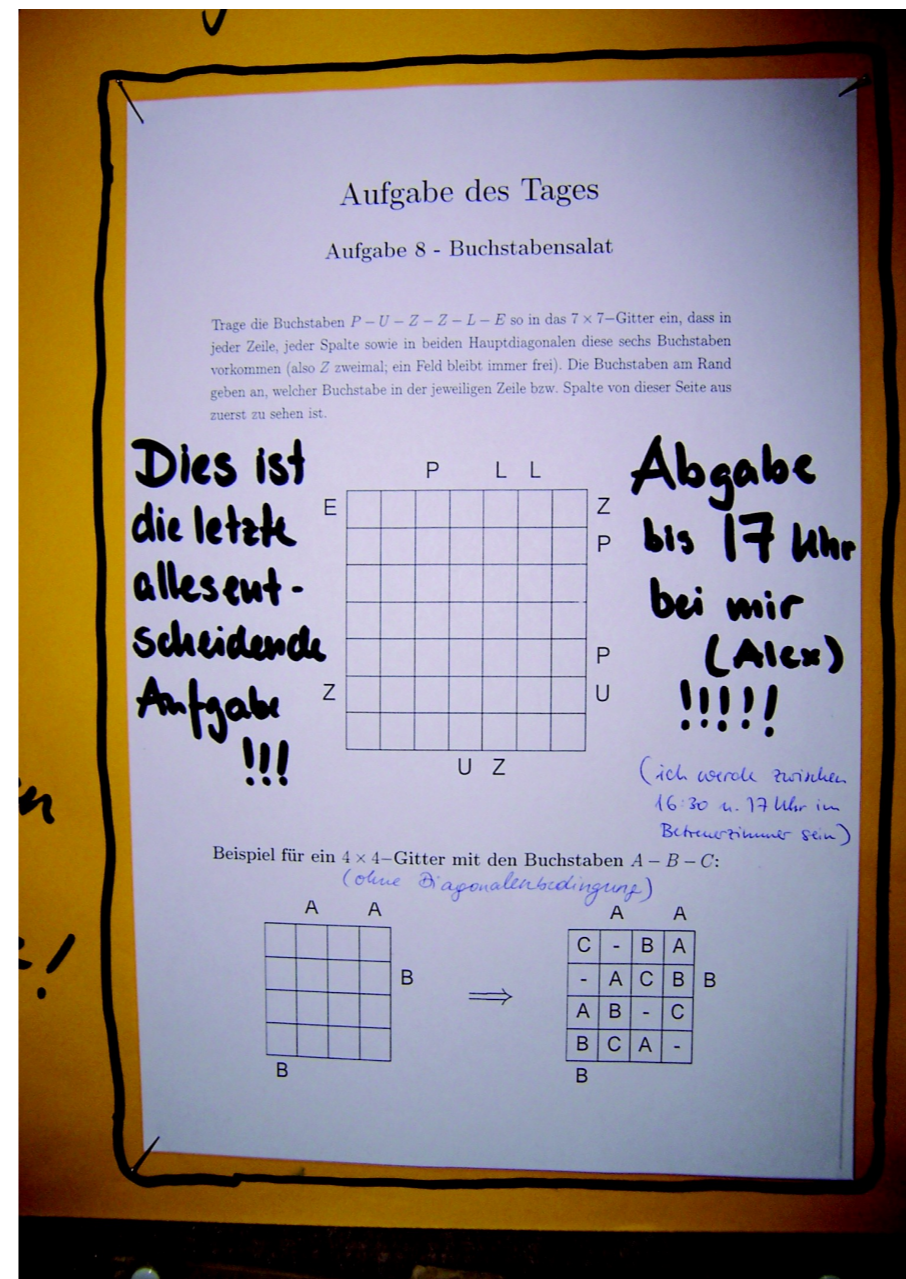 Aufgabe des Tages
Aufgabe 8 - Buchstabensalat
Trage die Buchstaben P – U – Z – Z – L – E so in das 7 × 7–Gitter ein, dass in
jeder Zeile, jeder Spalte sowie in beiden Hauptdiagonalen diese sechs Buchstaben
vorkommen (also Z zweimal; ein Feld bleibt immer frei). Die Buchstaben am Rand
geben an, welcher Buchstabe in der jeweiligen Zeile bzw. Spalte von dieser Seite aus
zuerst zu sehen ist.
Dies ist
die letzte
allesent-
scheidende
Aufgabe
!!!
P L L
E Z
P
P
Z U
U Z
Abgabe
bis 17 Uhr
bei mir
(Alex)
!!!!!
(ich werde zwischen
16:30 u. 17 Uhr im
Betreuerzimmer sein)
Beispiel für ein 4 × 4–Gitter mit den Buchstaben A – B – C:
(ohne Diagonalenbedingung)
A A
B
B
⟹
A A
C - B A
- A C B B
A B - C
B C A -
B